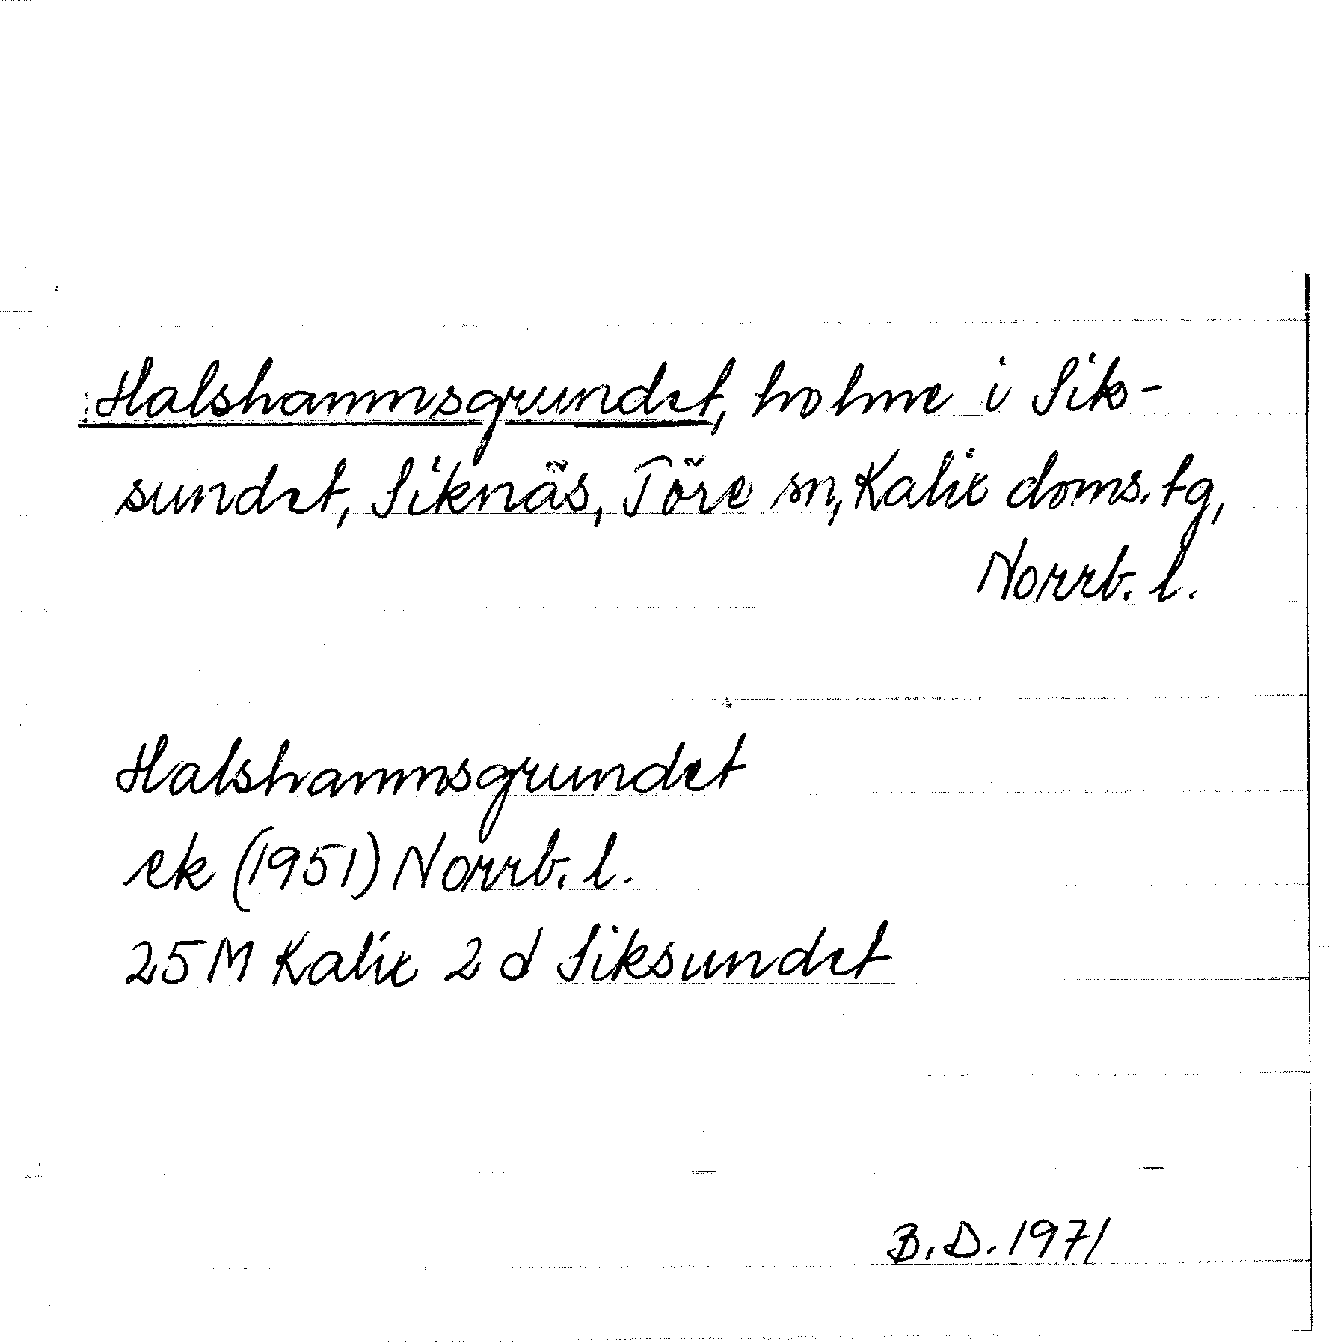 Halshamnsgrundet, holme i Sik-
sundet, Siknäs, Töre sn, Kalix doms. tg,
Norrb. l.
Halshamnsgrundet
ek (1951) Norrb. l.
25 M Kalix 2 d Siksundet
B. D. 1971